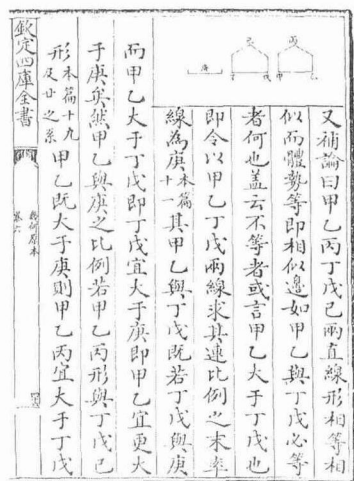 丙
己
甲
乙
丁
戊
庚
又補論曰甲乙丙丁戊己兩直線形相等相
似而體勢等即相似邊如甲乙與丁戊必等
者何也蓋云不等者或言甲乙大于丁戊也
即令以甲乙丁戊兩線求其連比例之末率
線為庚本篇十一其甲乙與丁戊既若丁戊與庚
而甲乙大于丁戊即丁戊宜大于庚即甲乙宜更大
于庚矣然甲乙與庚之比例若甲乙丙形與丁戊己
形本篇十九及廿之系甲乙既大于庚則甲乙丙宜大于丁戊
欽定四庫全書
幾何原本
卷六